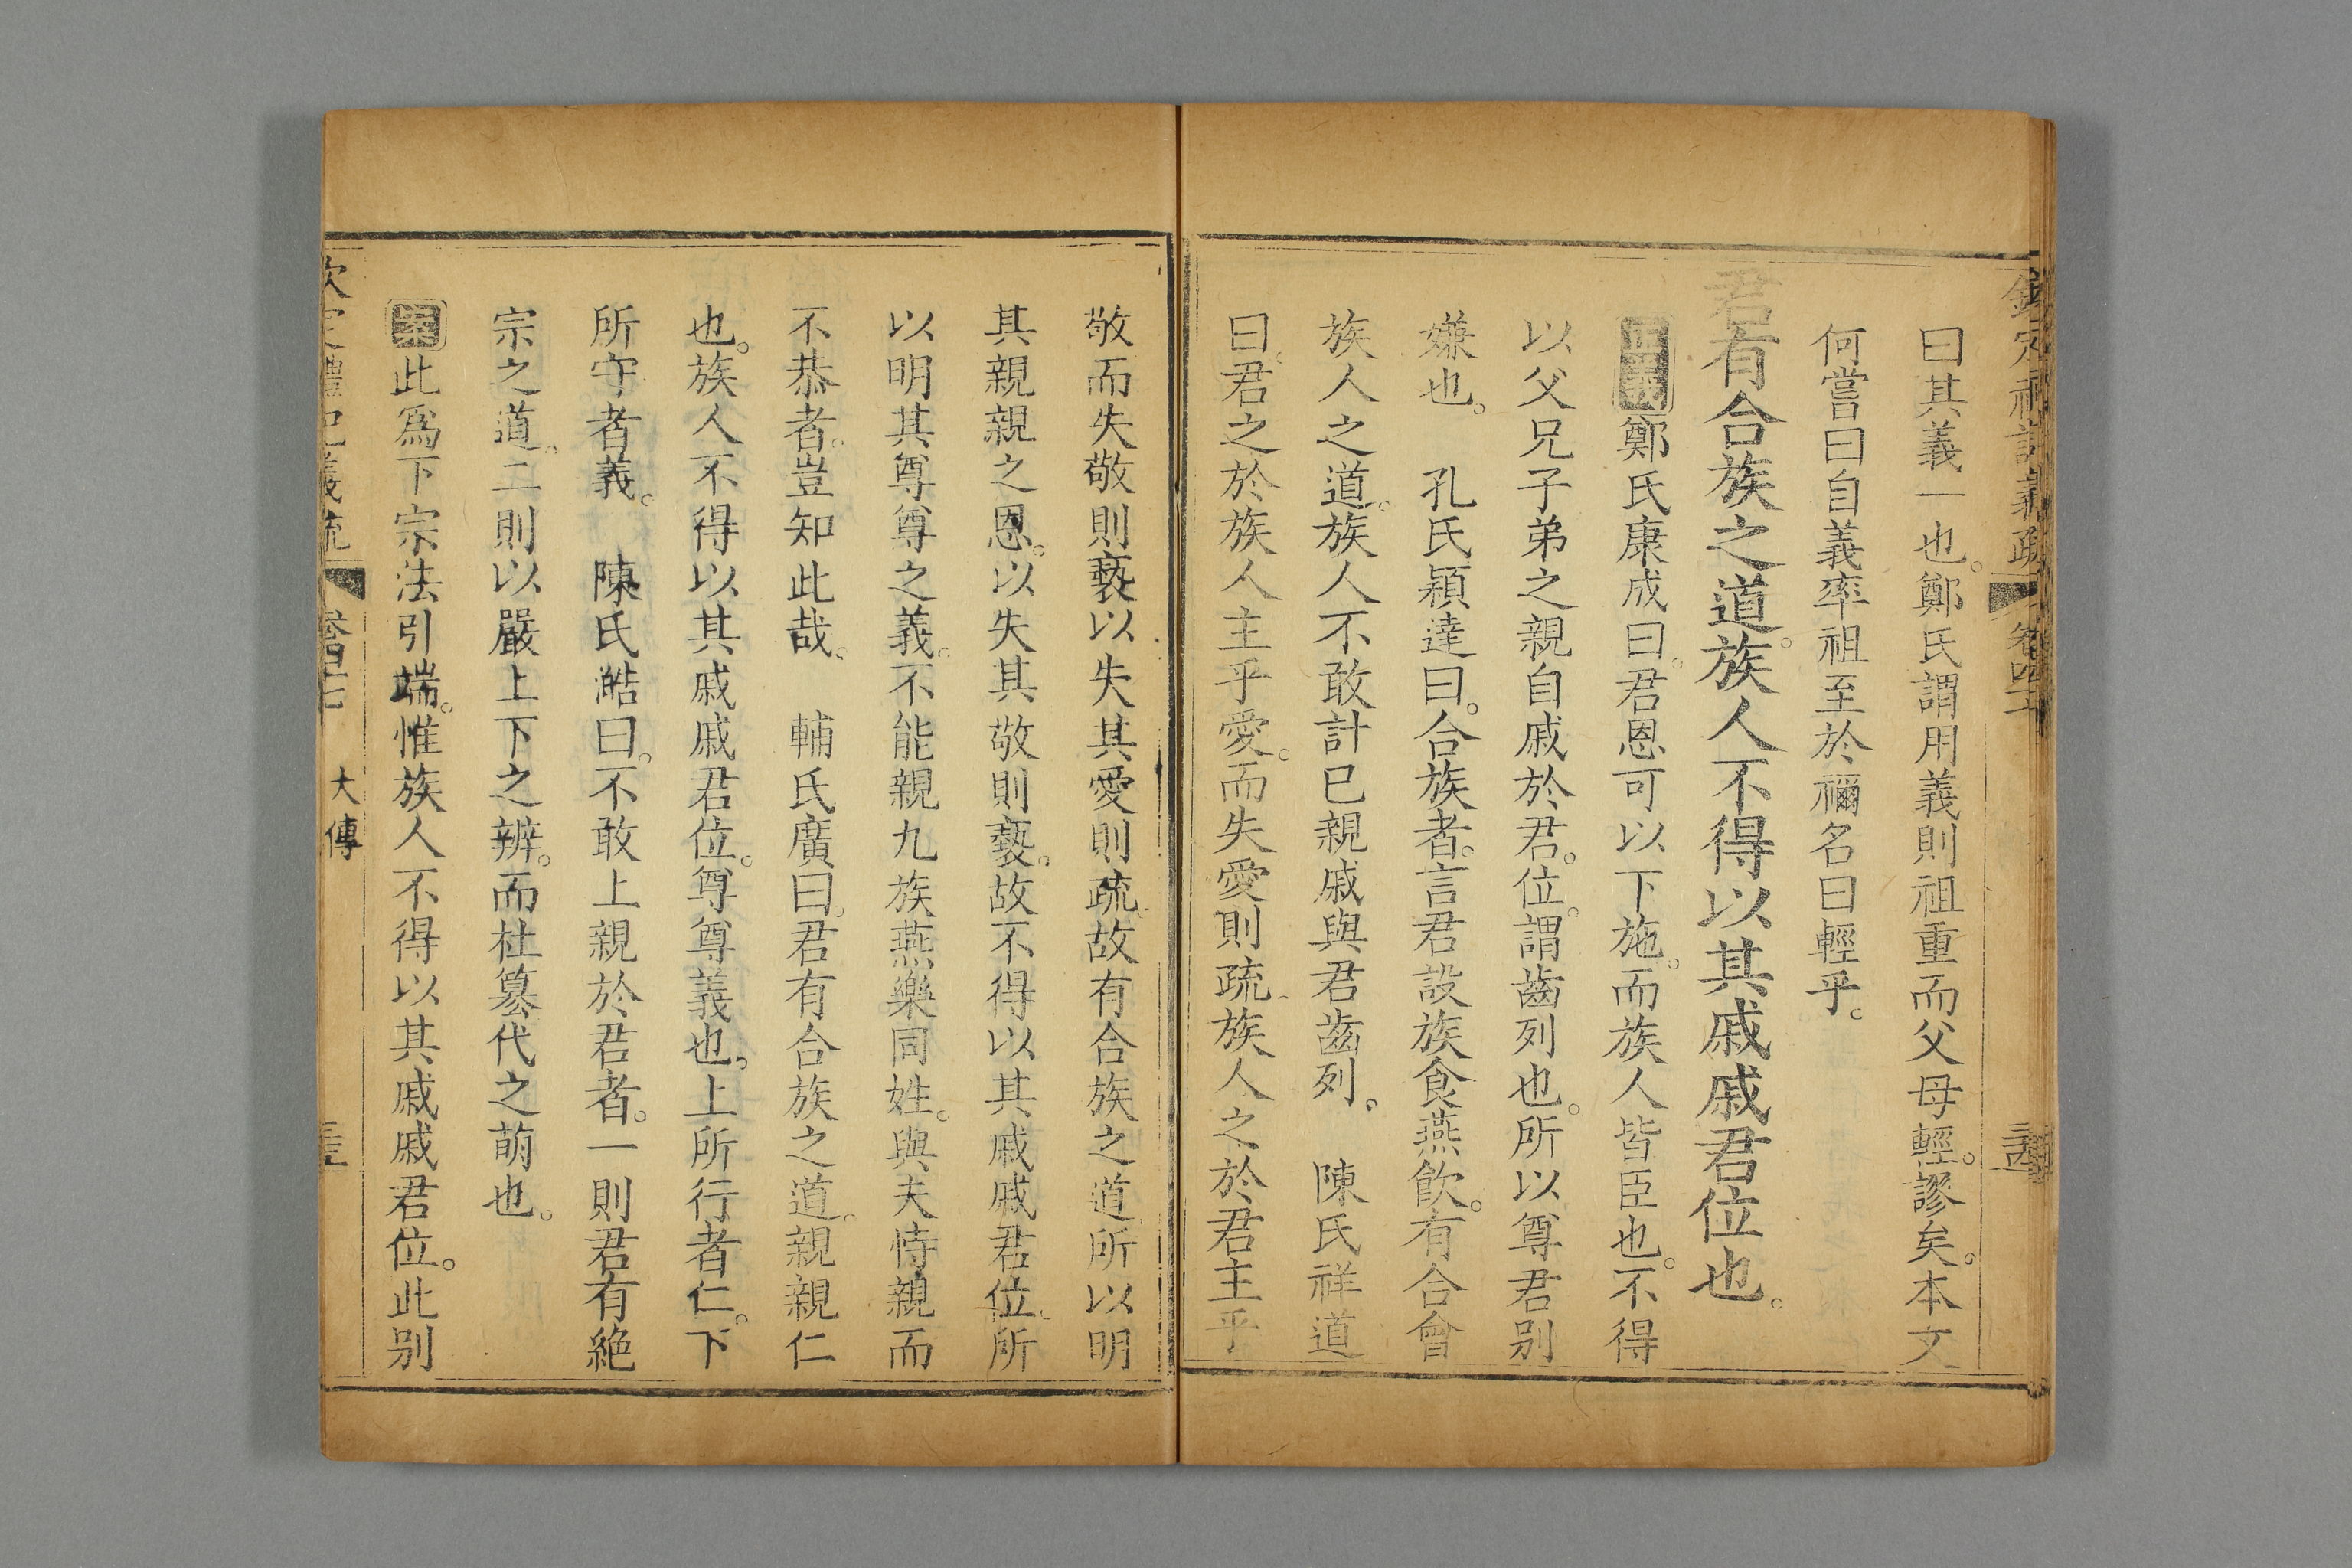 曰其義一也。鄭氏謂用義則祖重而父母輕。謬矣。本文
何嘗曰自義率祖至於禰名曰輕乎。
君有合族之道。族人不得以其戚戚君位也。
鄭氏康成曰。君恩可以下施。而族人皆臣也。不得
以父兄子弟之親自戚於君。位。謂齒列也。所以尊君别
嫌也。 孔氏穎達曰。合族者。言君設族食燕飲。有合會
族人之道。族人不敢計已親戚與君齒列。 陳氏祥道
曰。君之於族人主乎愛。而失愛則疏。族人之於君主乎
敬而失敬則褻以失其愛則疏。故有合族之道所以明
其親親之恩。以失其敬則褻。故不得以其戚戚君位。所
以明其尊尊之義。不能親九族燕樂同姓。與夫恃親而
不恭者。豈知此哉。 輔氏廣曰。君有合族之道。親親仁
也。族人不得以其戚戚君位。尊尊義也。上所行者仁。下
所守者義。 陳氏澔曰。不敢上親於君者。一則君有絶
宗之道。二則以嚴上下之辨。而杜簒代之萌也。
案此爲下宗法引端。惟族人不得以其戚戚君位。此别
大傳